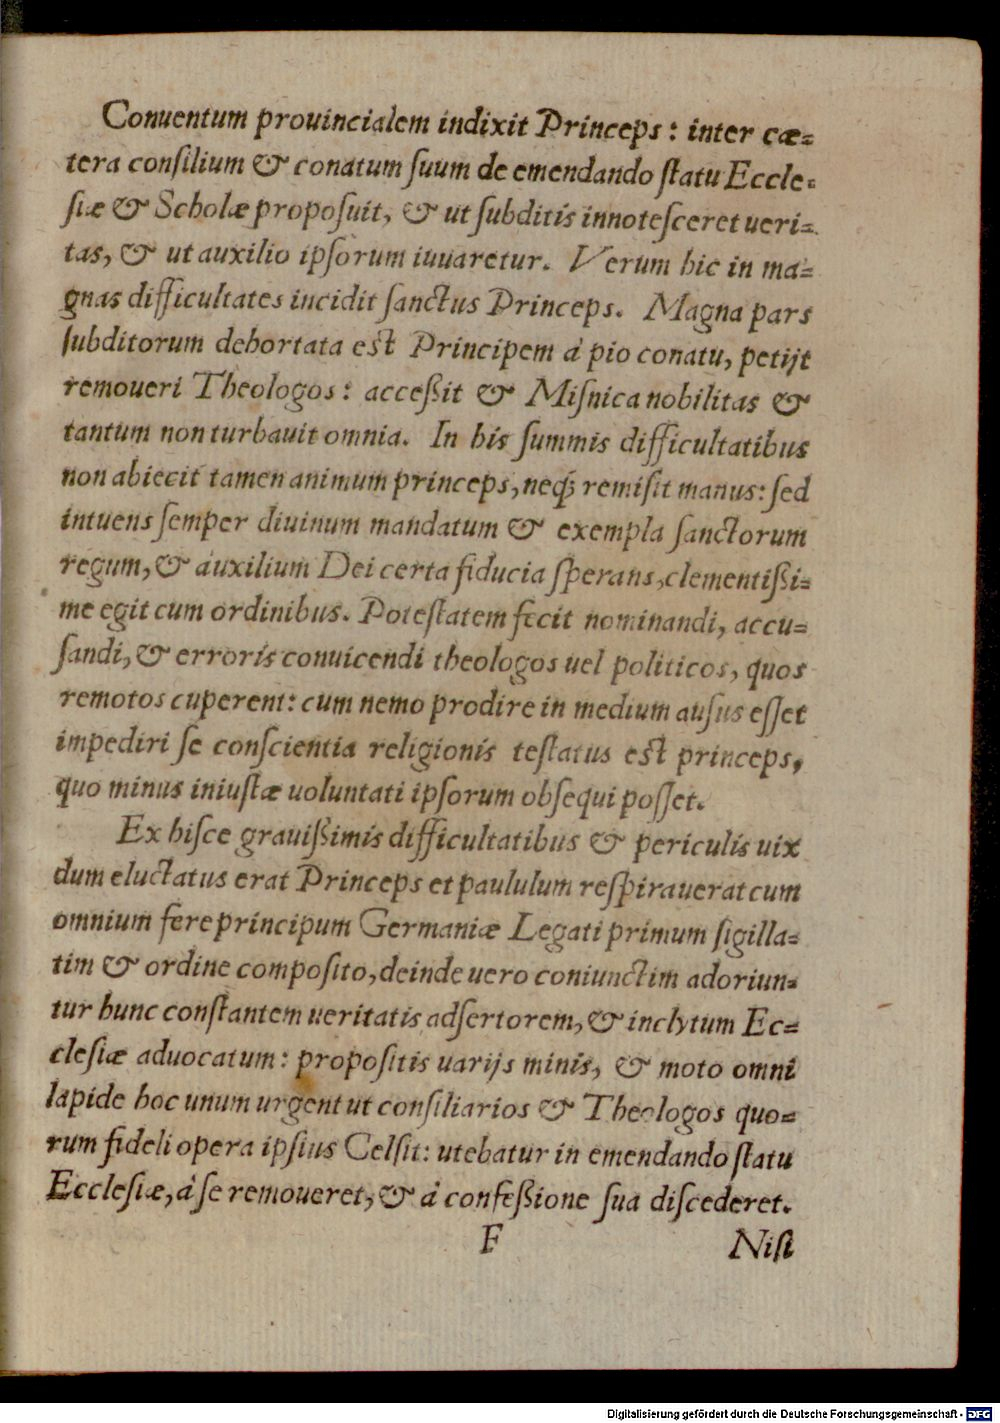 Conuentum prouincialem indixit Princeps: inter cæ=
tera consilium & conatum suum de emendando statu Eccle=
siæ & Scholæ proposuit, & ut subditis innotesceret ueri=
tas, & ut auxilio ipsorum iuuaretur. Verum hic in ma=
gnas difficultates incidit sanctus Princeps. Magna pars
subditorum dehortata est Principem à pio conatu, petijt
remoueri Theologos: acceßit & Misnica nobilitas &
tantum non turbauit omnia. In his summis difficultatibus
non abiecit tamen animum princeps, neq; remisit manus: sed
intuens semper diuinum mandatum & exempla sanctorum
regum, & auxilium Dei certa fiducia sperans, clementißi=
me egit cum ordinibus. Potestatem fecit nominandi, accu=
sandi, & erroris conuicendi theologos uel politicos, quos
remotos cuperent: cum nemo prodire in medium ausus esset
impediri se conscientia religionis testatus est princeps,
quo minus iniustæ uoluntati ipsorum obsequi posset.
Ex hisce grauißimis difficultatibus & periculis uix
dum eluctatus erat Princeps et paululum respirauerat cum
omnium fere principum Germaniæ Legati primum sigilla=
tim & ordine composito, deinde uero coniunctim adoriun=
tur hunc constantem ueritatis adsertorem, & inclytum Ec=
clesiæ aduocatum: propositis uarijs minis, & moto omni
lapide hoc unum urgent ut consiliarios & Theologos quo=
rum fideli opera ipsius Celsit: utebatur in emendando statu
Ecclesiæ, à se remoueret, & à confeßione sua discederet.
F Nisi
Digitalisierung gefördert durch die Deutsche Forschungsgemeinschaft - DFG